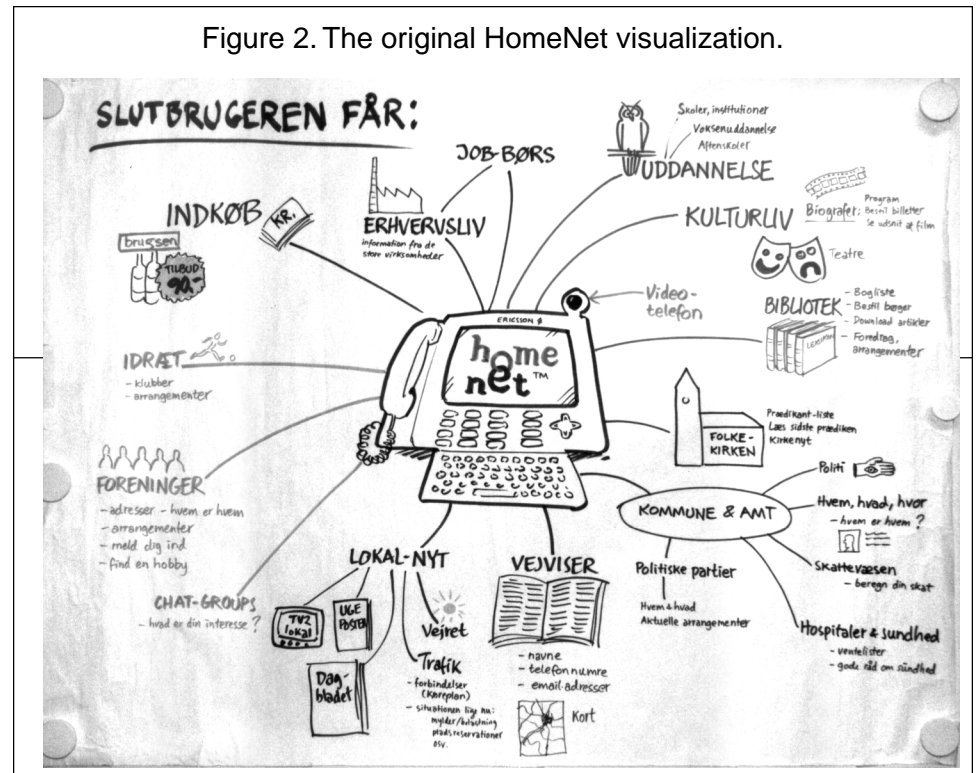 Figure 2. The original HomeNet visualization.
SLUTBRUGEREN FÅR:
INDKØB
KR.
brugsen
TILBUD
90,-
ERHVERVSLIV
information fra de
store virksomheder
JOB-BØRS
Skoler, institutioner
Voksenuddannelse
Aftenskoler
UDDANNELSE
KULTURLIV
Biografer:
Program
Bestil billetter
Se udsnit af film
Teatre
Video-
telefon
BIBLIOTEK
- Bogliste
- Bestil bøger
- Download artikler
- Foredrag,
arrangementer
LEKSIKON
ERICSSON
home
net™
IDRÆT
- klubber
- arrangementer
FORENINGER
- adresser - hvem er hvem
- arrangementer
- meld dig ind
- find en hobby
CHAT-GROUPS
- hvad er din interesse?
FOLKE-
KIRKEN
Prædikant-liste
Læs sidste prædiken
Kirkenyt
KOMMUNE & AMT
Politi
Hvem, hvad, hvor
- hvem er hvem?
Skattevæsen
- beregn din skat
Hospitaler & sundhed
- ventelister
- gode råd om sundhed
Politiske partier
Hvem & hvad
Aktuelle arrangementer
LOKAL-NYT
TV2
lokal
UGE
POSTEN
Dag-
bladet
Vejret
Trafik
- forbindelser
(Køreplan)
- situationen lige nu:
pladsreservationer
osv.
VEJVISER
- navne
- telefonnumre
- email-adresser
Kort